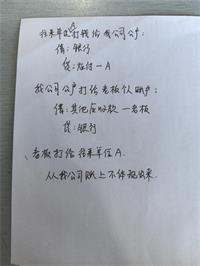 往来单位A打钱给我公司公户:
借:银行
贷:应付一A
我公司公户打给老板个人账户:
借:其他应收款一老板
贷:银行
老板打给往来单位A.
从我公司账上不体现出来.